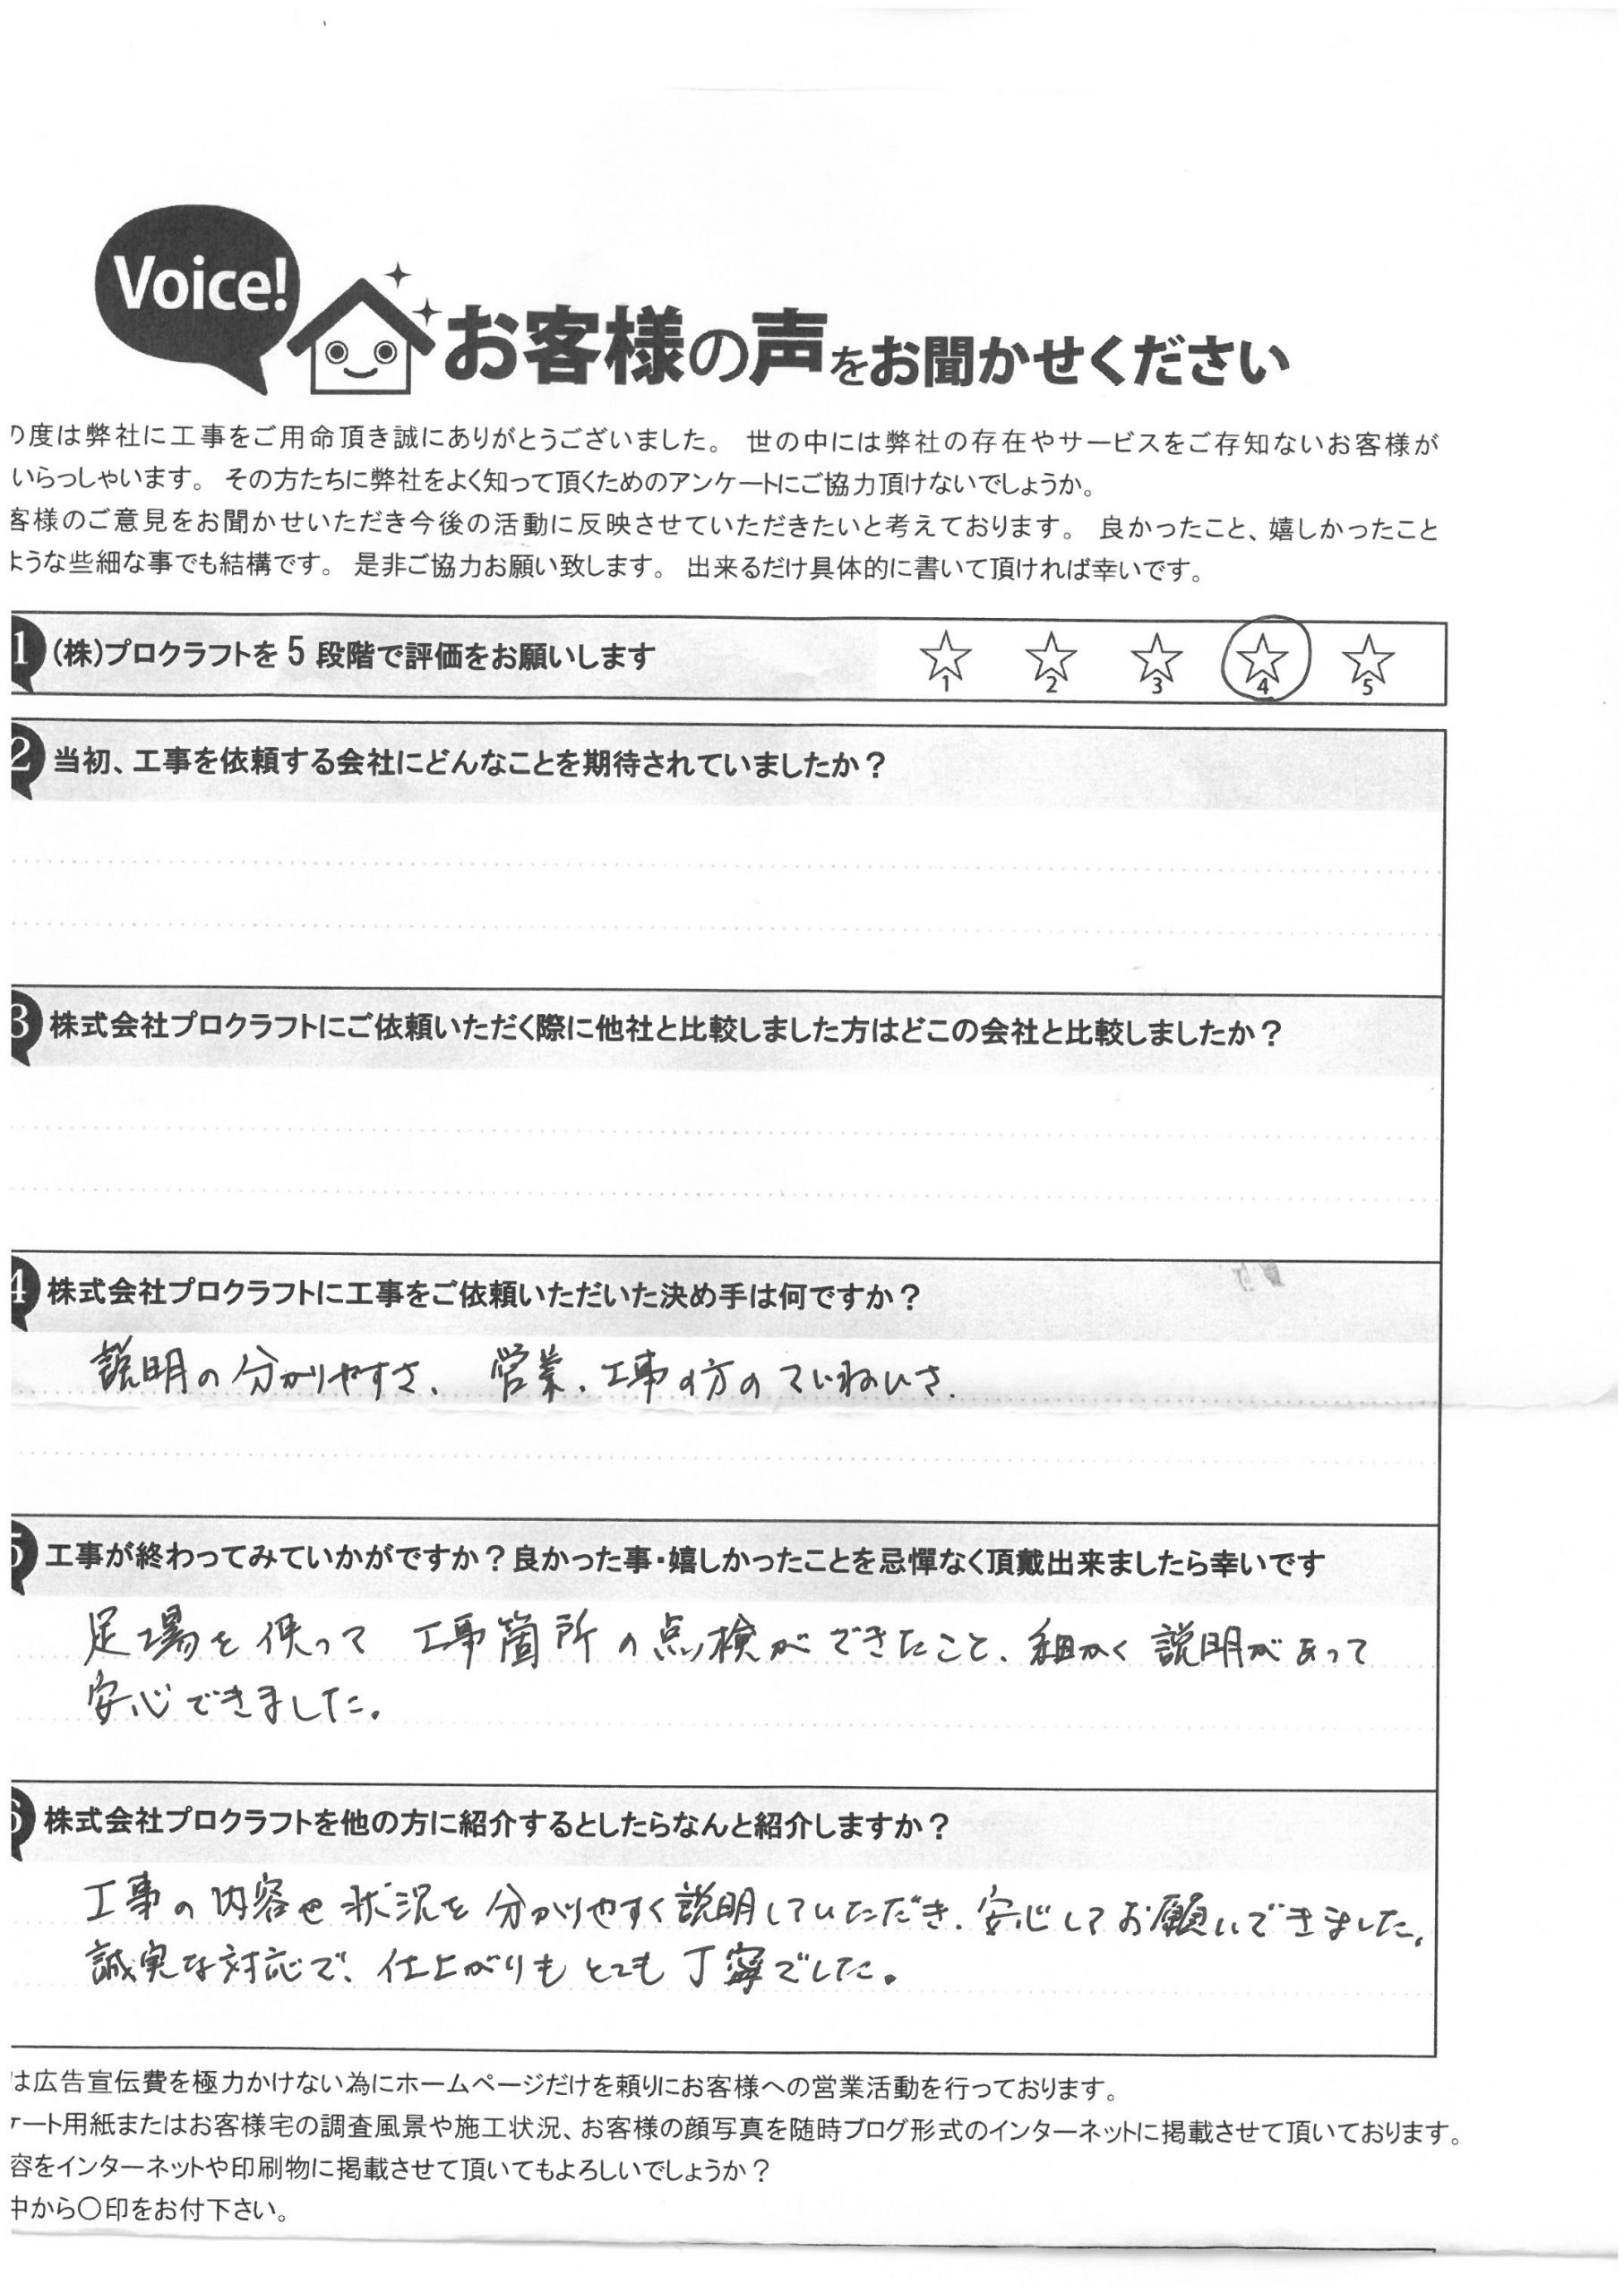 Voice!
お客様の声をお聞かせください
の度は弊社に工事をご用命頂き誠にありがとうございました。 世の中には弊社の存在やサービスをご存知ないお客様が
いらっしゃいます。 その方たちに弊社をよく知って頂くためのアンケートにご協力頂けないでしょうか。
客様のご意見をお聞かせいただき今後の活動に反映させていただきたいと考えております。 良かったこと、嬉しかったこと
ような些細な事でも結構です。 是非ご協力お願い致します。 出来るだけ具体的に書いて頂ければ幸いです。
1 (株)プロクラフトを 5 段階で評価をお願いします ☆1 ☆2 ☆3 ☆4 ☆5
2 当初、工事を依頼する会社にどんなことを期待されていましたか?
3 株式会社プロクラフトにご依頼いただく際に他社と比較しました方はどこの会社と比較しましたか?
4 株式会社プロクラフトに工事をご依頼いただいた決め手は何ですか?
説明の分かりやすさ、 営業、工事の方のていねいさ.
5 工事が終わってみていかがですか?良かった事・嬉しかったことを忌憚なく頂戴出来ましたら幸いです
足場を使って 工事箇所の点検ができたこと、細かく説明があって
安心できました。
6 株式会社プロクラフトを他の方に紹介するとしたらなんと紹介しますか?
工事の内容や状況を分かりやすく説明していただき、安心してお願いできました。
誠実な対応で、仕上がりもとても丁寧でした。
は広告宣伝費を極力かけない為にホームページだけを頼りにお客様への営業活動を行っております。
ケート用紙またはお客様宅の調査風景や施工状況、お客様の顔写真を随時ブログ形式のインターネットに掲載させて頂いております。
容をインターネットや印刷物に掲載させて頂いてもよろしいでしょうか?
中から〇印をお付下さい。